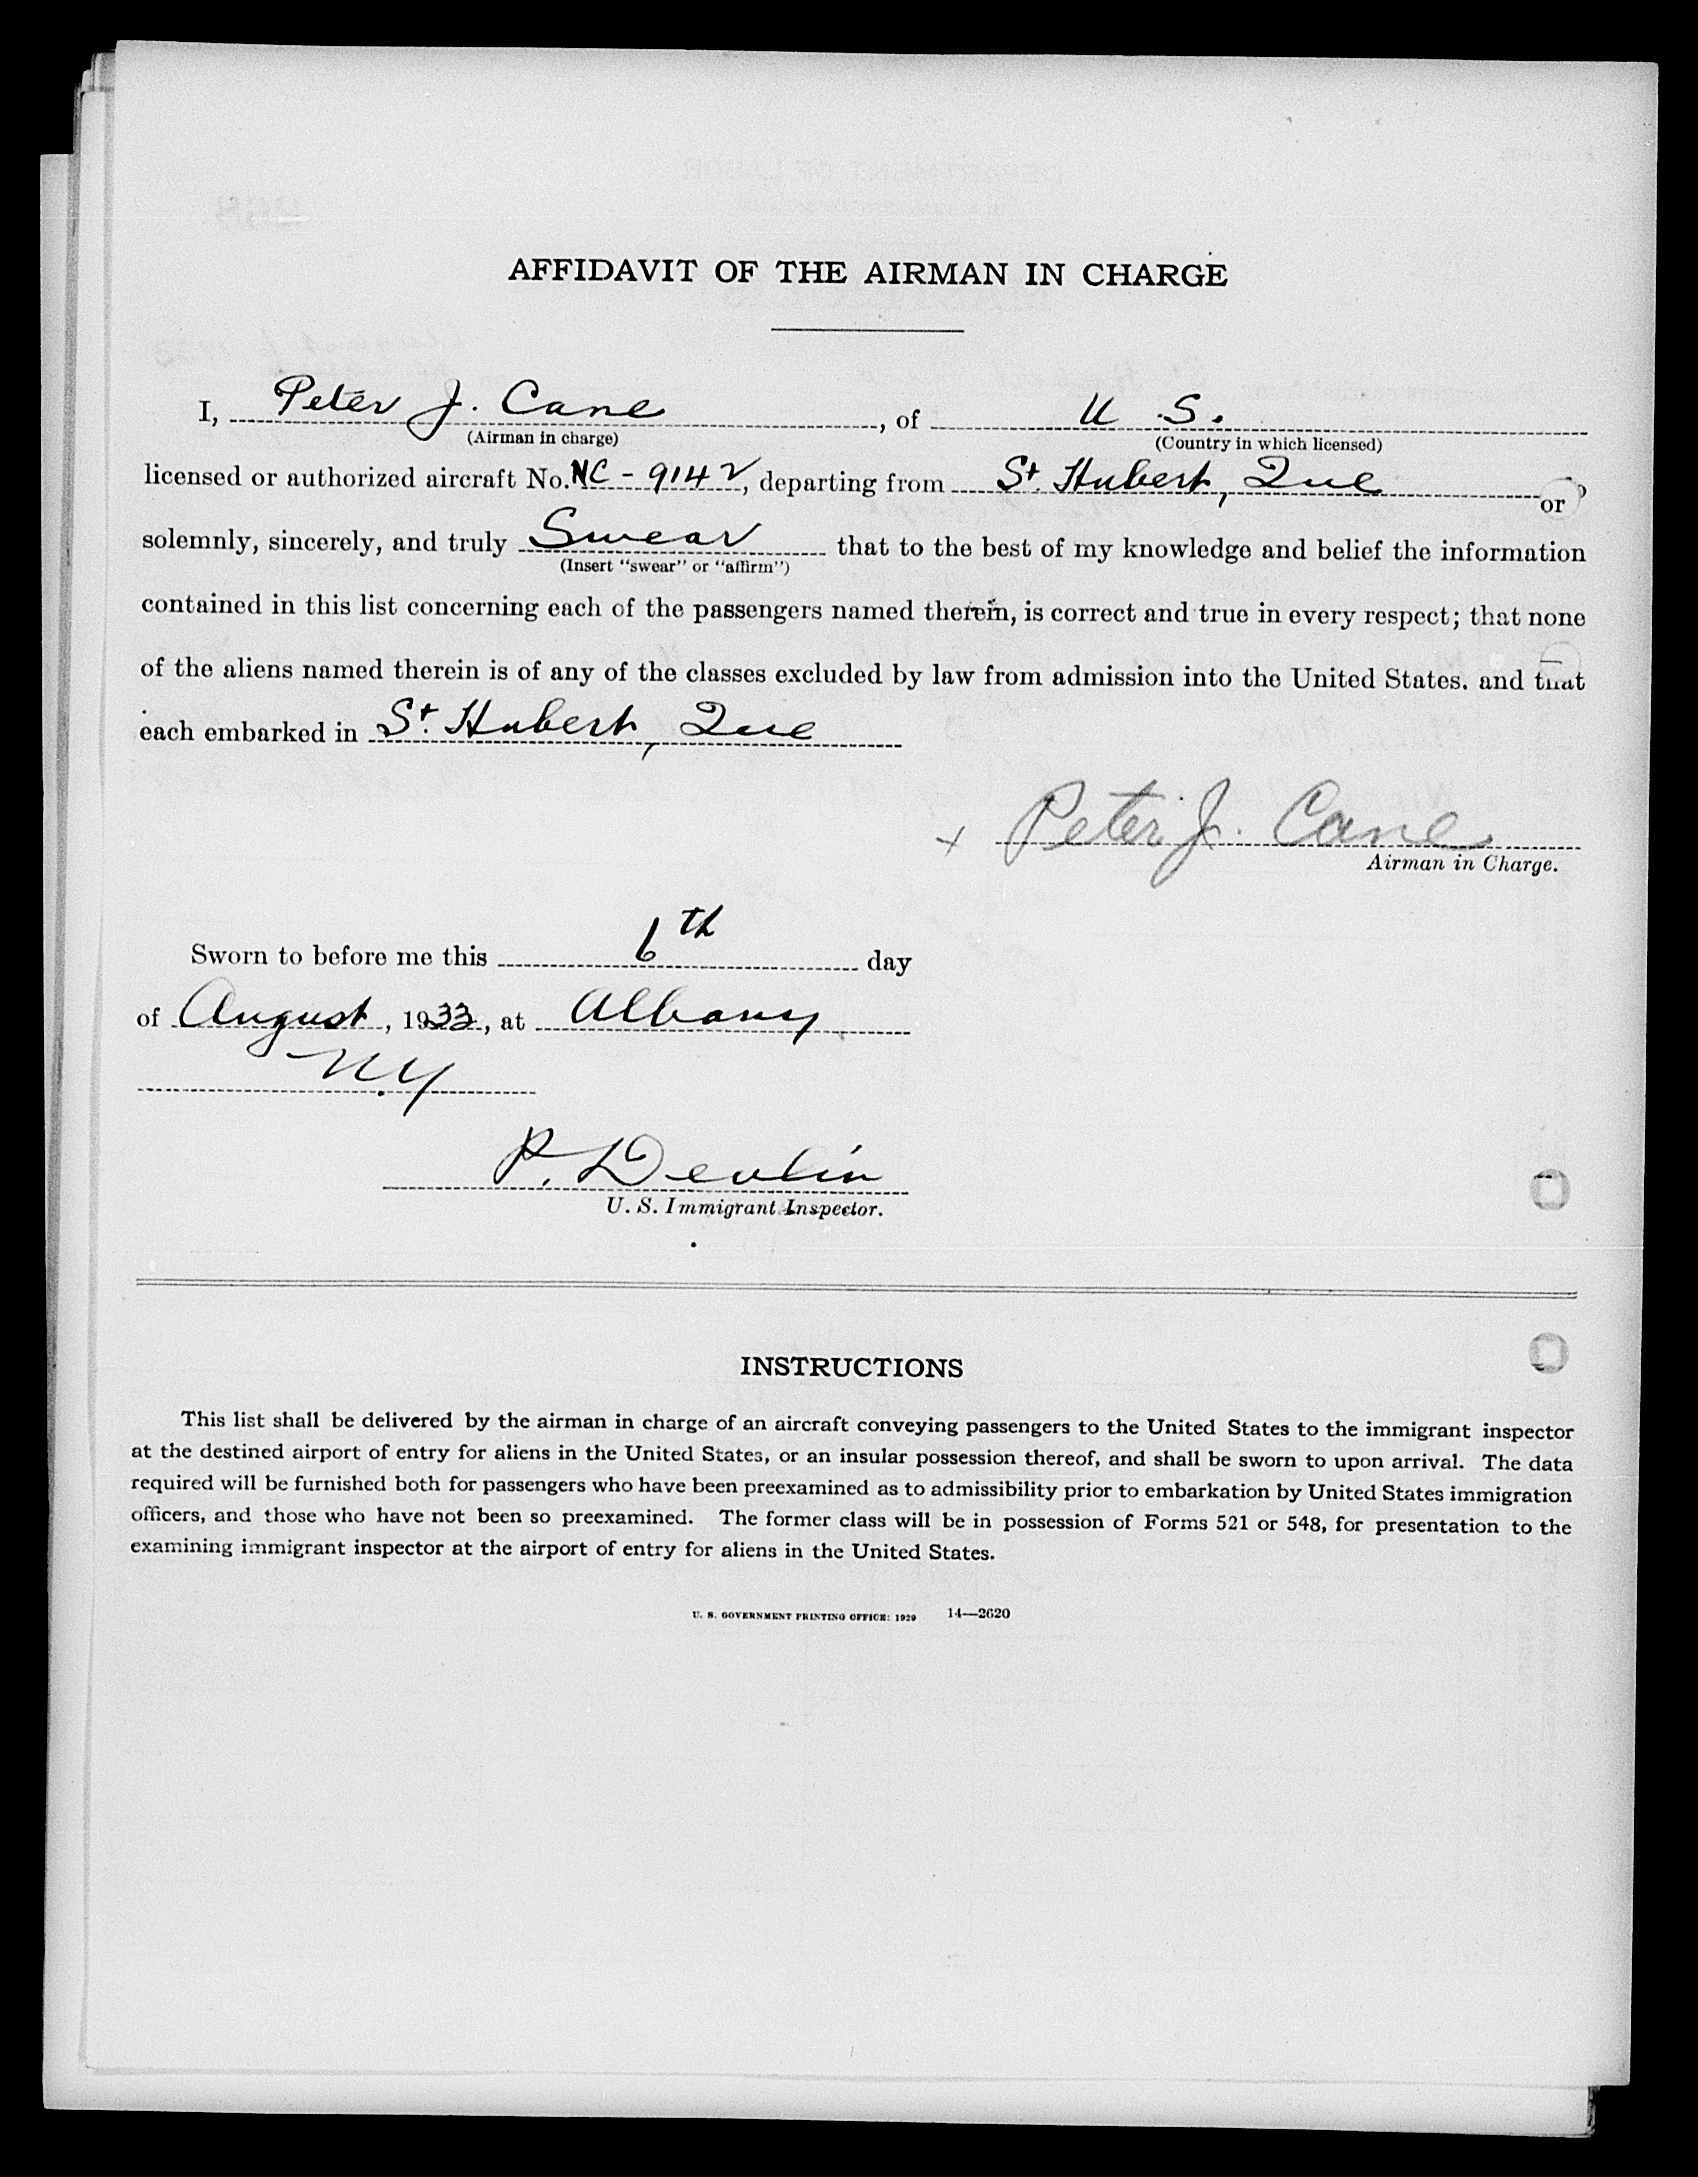 AFFIDAVIT OF THE AIRMAN IN CHARGE
I, Peter J. Cane, of U.S.
(Airman in charge) (Country in which licensed)
licensed or authorized aircraft No. NC-914V, departing from St. Hubert, Que
or
solemnly, sincerely, and truly Swear that to the best of my knowledge and belief the information
(Insert "swear" or "affirm")
contained in this list concerning each of the passengers named therein, is correct and true in every respect; that none
of the aliens named therein is of any of the classes excluded by law from admission into the United States. and that
each embarked in St. Hubert, Que
x Peter J. Cane
Airman in Charge.
Sworn to before me this 6th day
of August, 1933, at Albany
N.Y
P. Devlin
U. S. Immigrant Inspector.
INSTRUCTIONS
This list shall be delivered by the airman in charge of an aircraft conveying passengers to the United States to the immigrant inspector
at the destined airport of entry for aliens in the United States, or an insular possession thereof, and shall be sworn to upon arrival. The data
required will be furnished both for passengers who have been preexamined as to admissibility prior to embarkation by United States immigration
officers, and those who have not been so preexamined. The former class will be in possession of Forms 521 or 548, for presentation to the
examining immigrant inspector at the airport of entry for aliens in the United States.
U. S. GOVERNMENT PRINTING OFFICE: 1929 14—2620